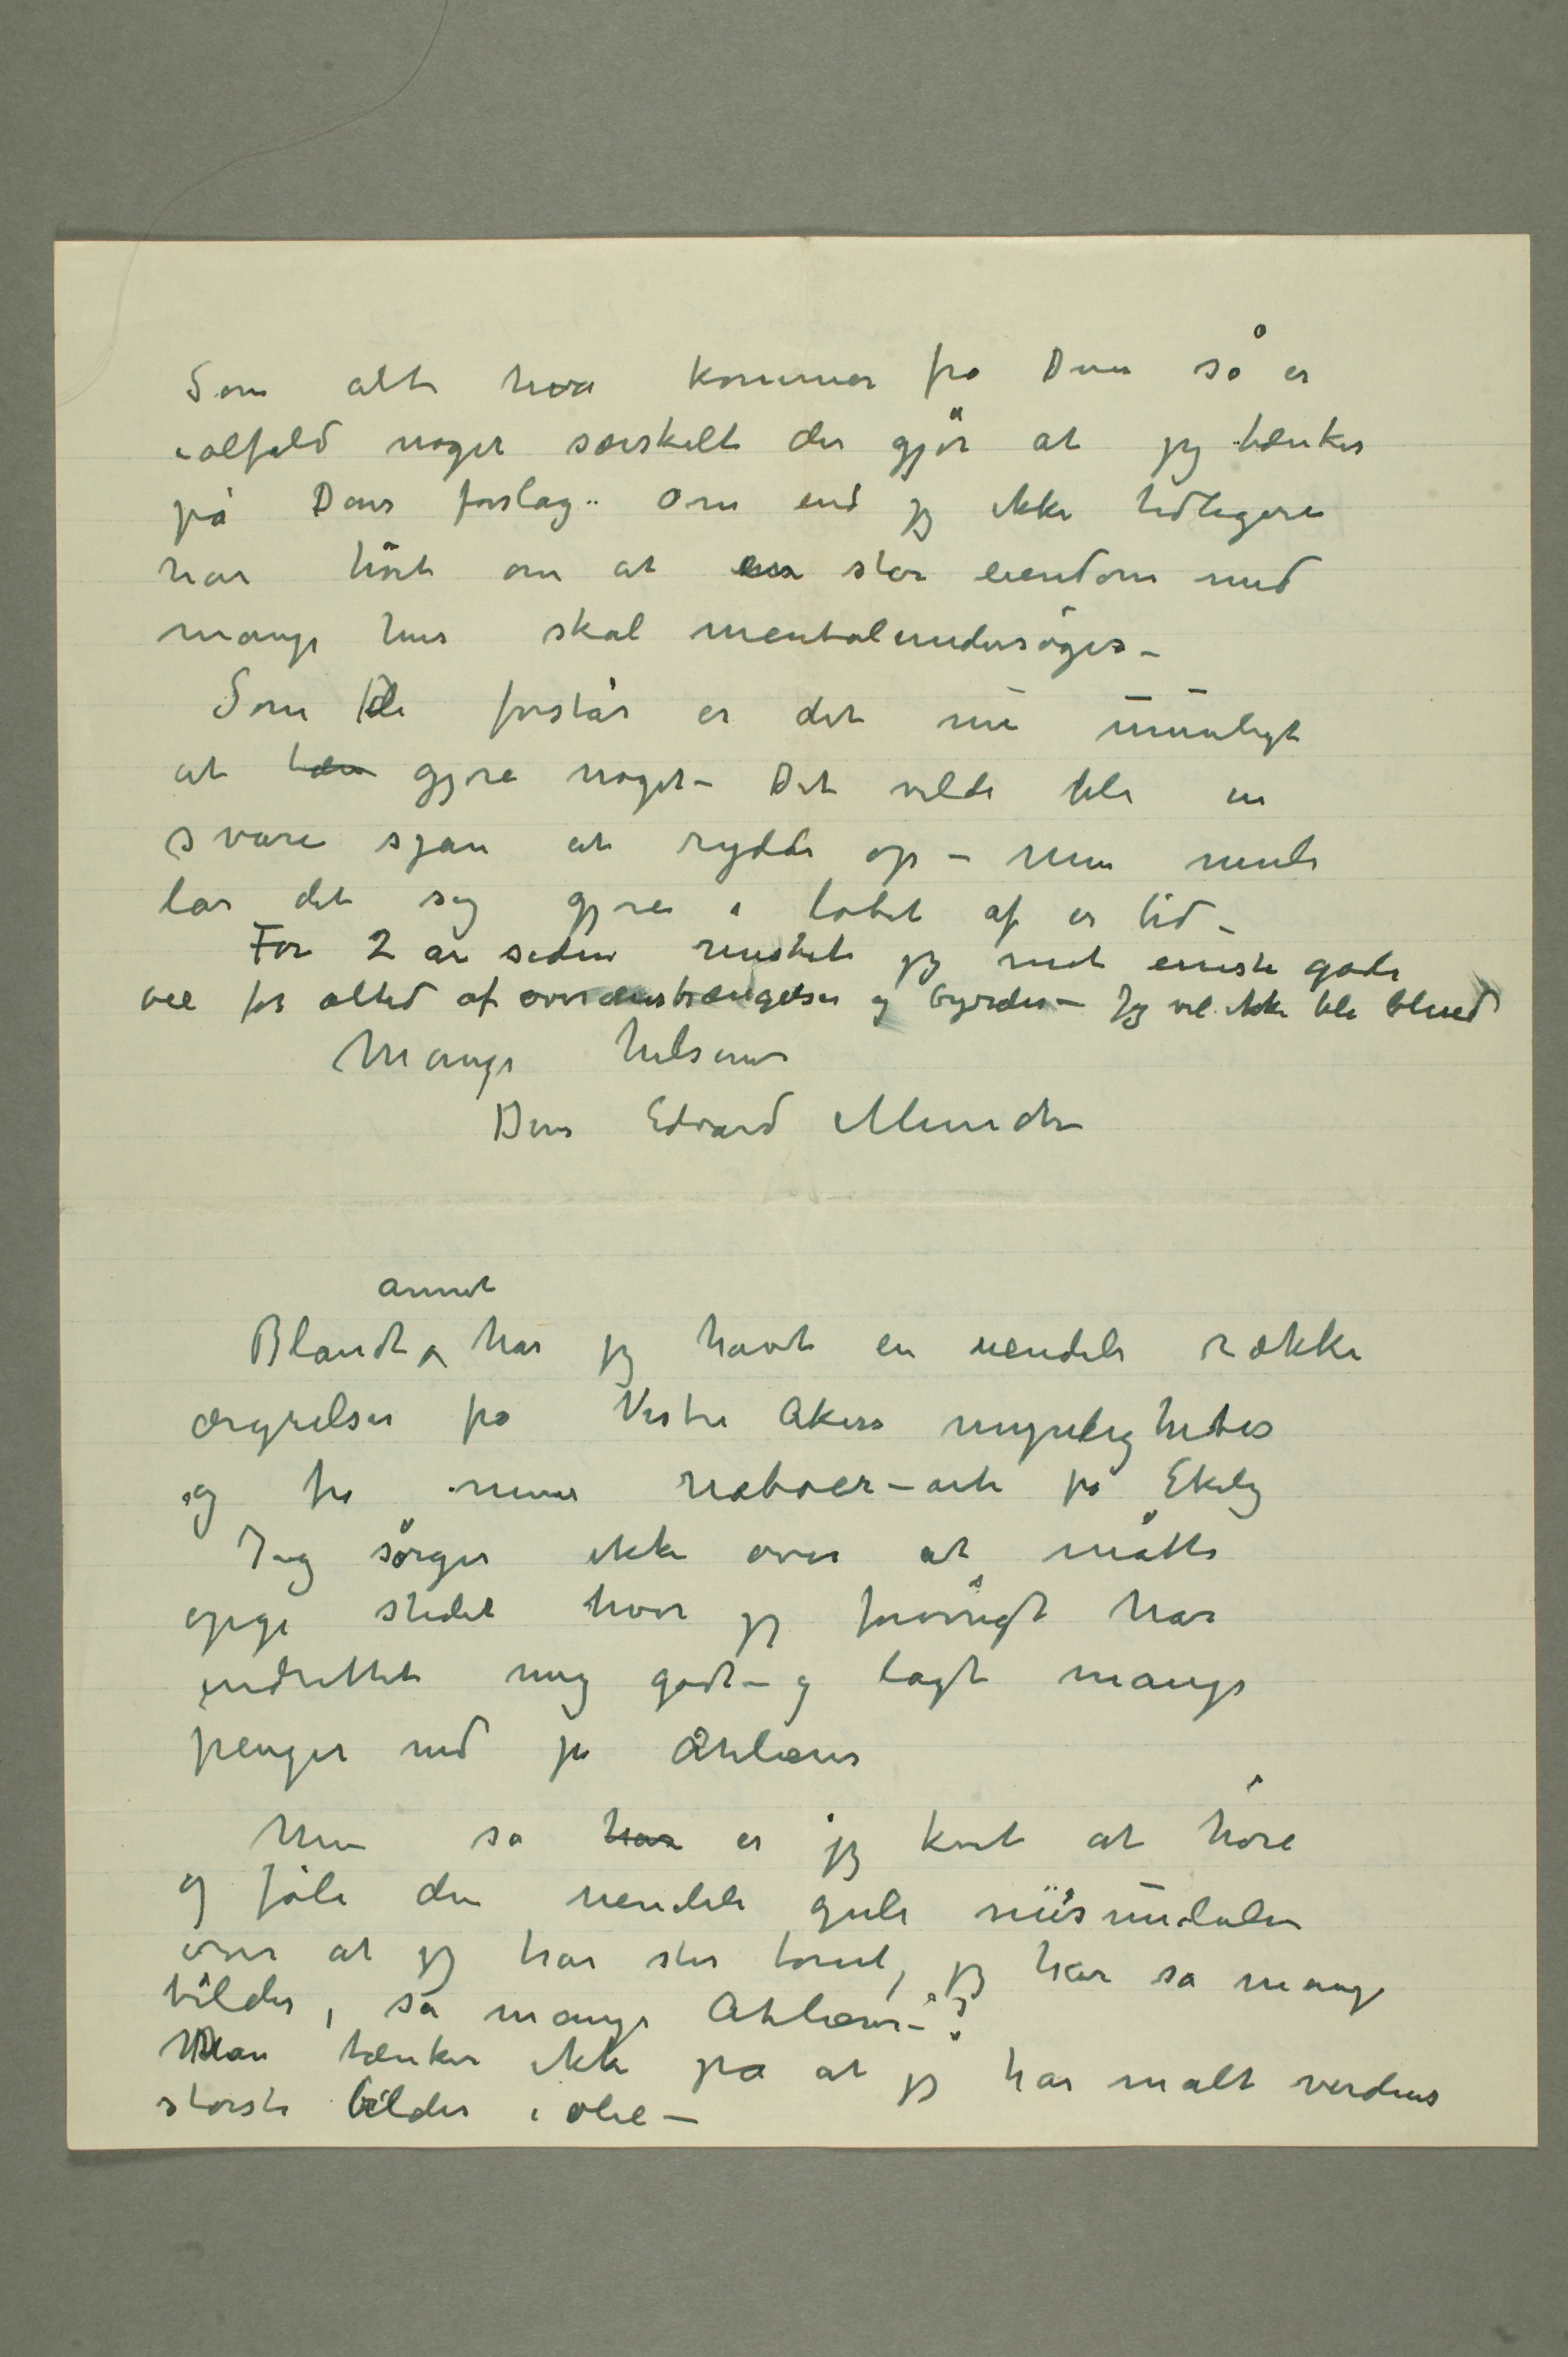 Som alt hva kommer fra Dem så er
ialfald noget særskilt der gjör at jeg tænker
på Deres forslag.. Om end jeg ikke tidligere
har hört om at en stor eiendom med
mange hus skal mentalundersöges –
Som De forstår er det nu umuligt
at gjøre noget – Det vilde bli en
svare sjau at rydde op – Men måske
lar det sig gjøre i løbet af en tid –
For 2 år siden mistet jeg mit eneste gode
øie for altid af overanstrængelser og byrder – Jeg vil ikke bli blind
Mange hilsener
Deres Edvard Munch
annet
Blandt har jeg havt en uendeli række
ærgrelser fra Vestre Akers myndigheter
og fra mine naboer – alt på Ekely
Jeg sørger ikke over at måtte
opgi stedet hvor jeg forøvrigt har
indrettet mig godt – og lagt mange
penger ned på Atelierer
Men så har er jeg kvit at høre
og føle den uendeli gule misundelsen
over at jeg har stor tomt, jeg har så mange
bilder, så mange Atelierer – ?
Man tænker ikke på at jeg har malt verdens
største bilder i olie –